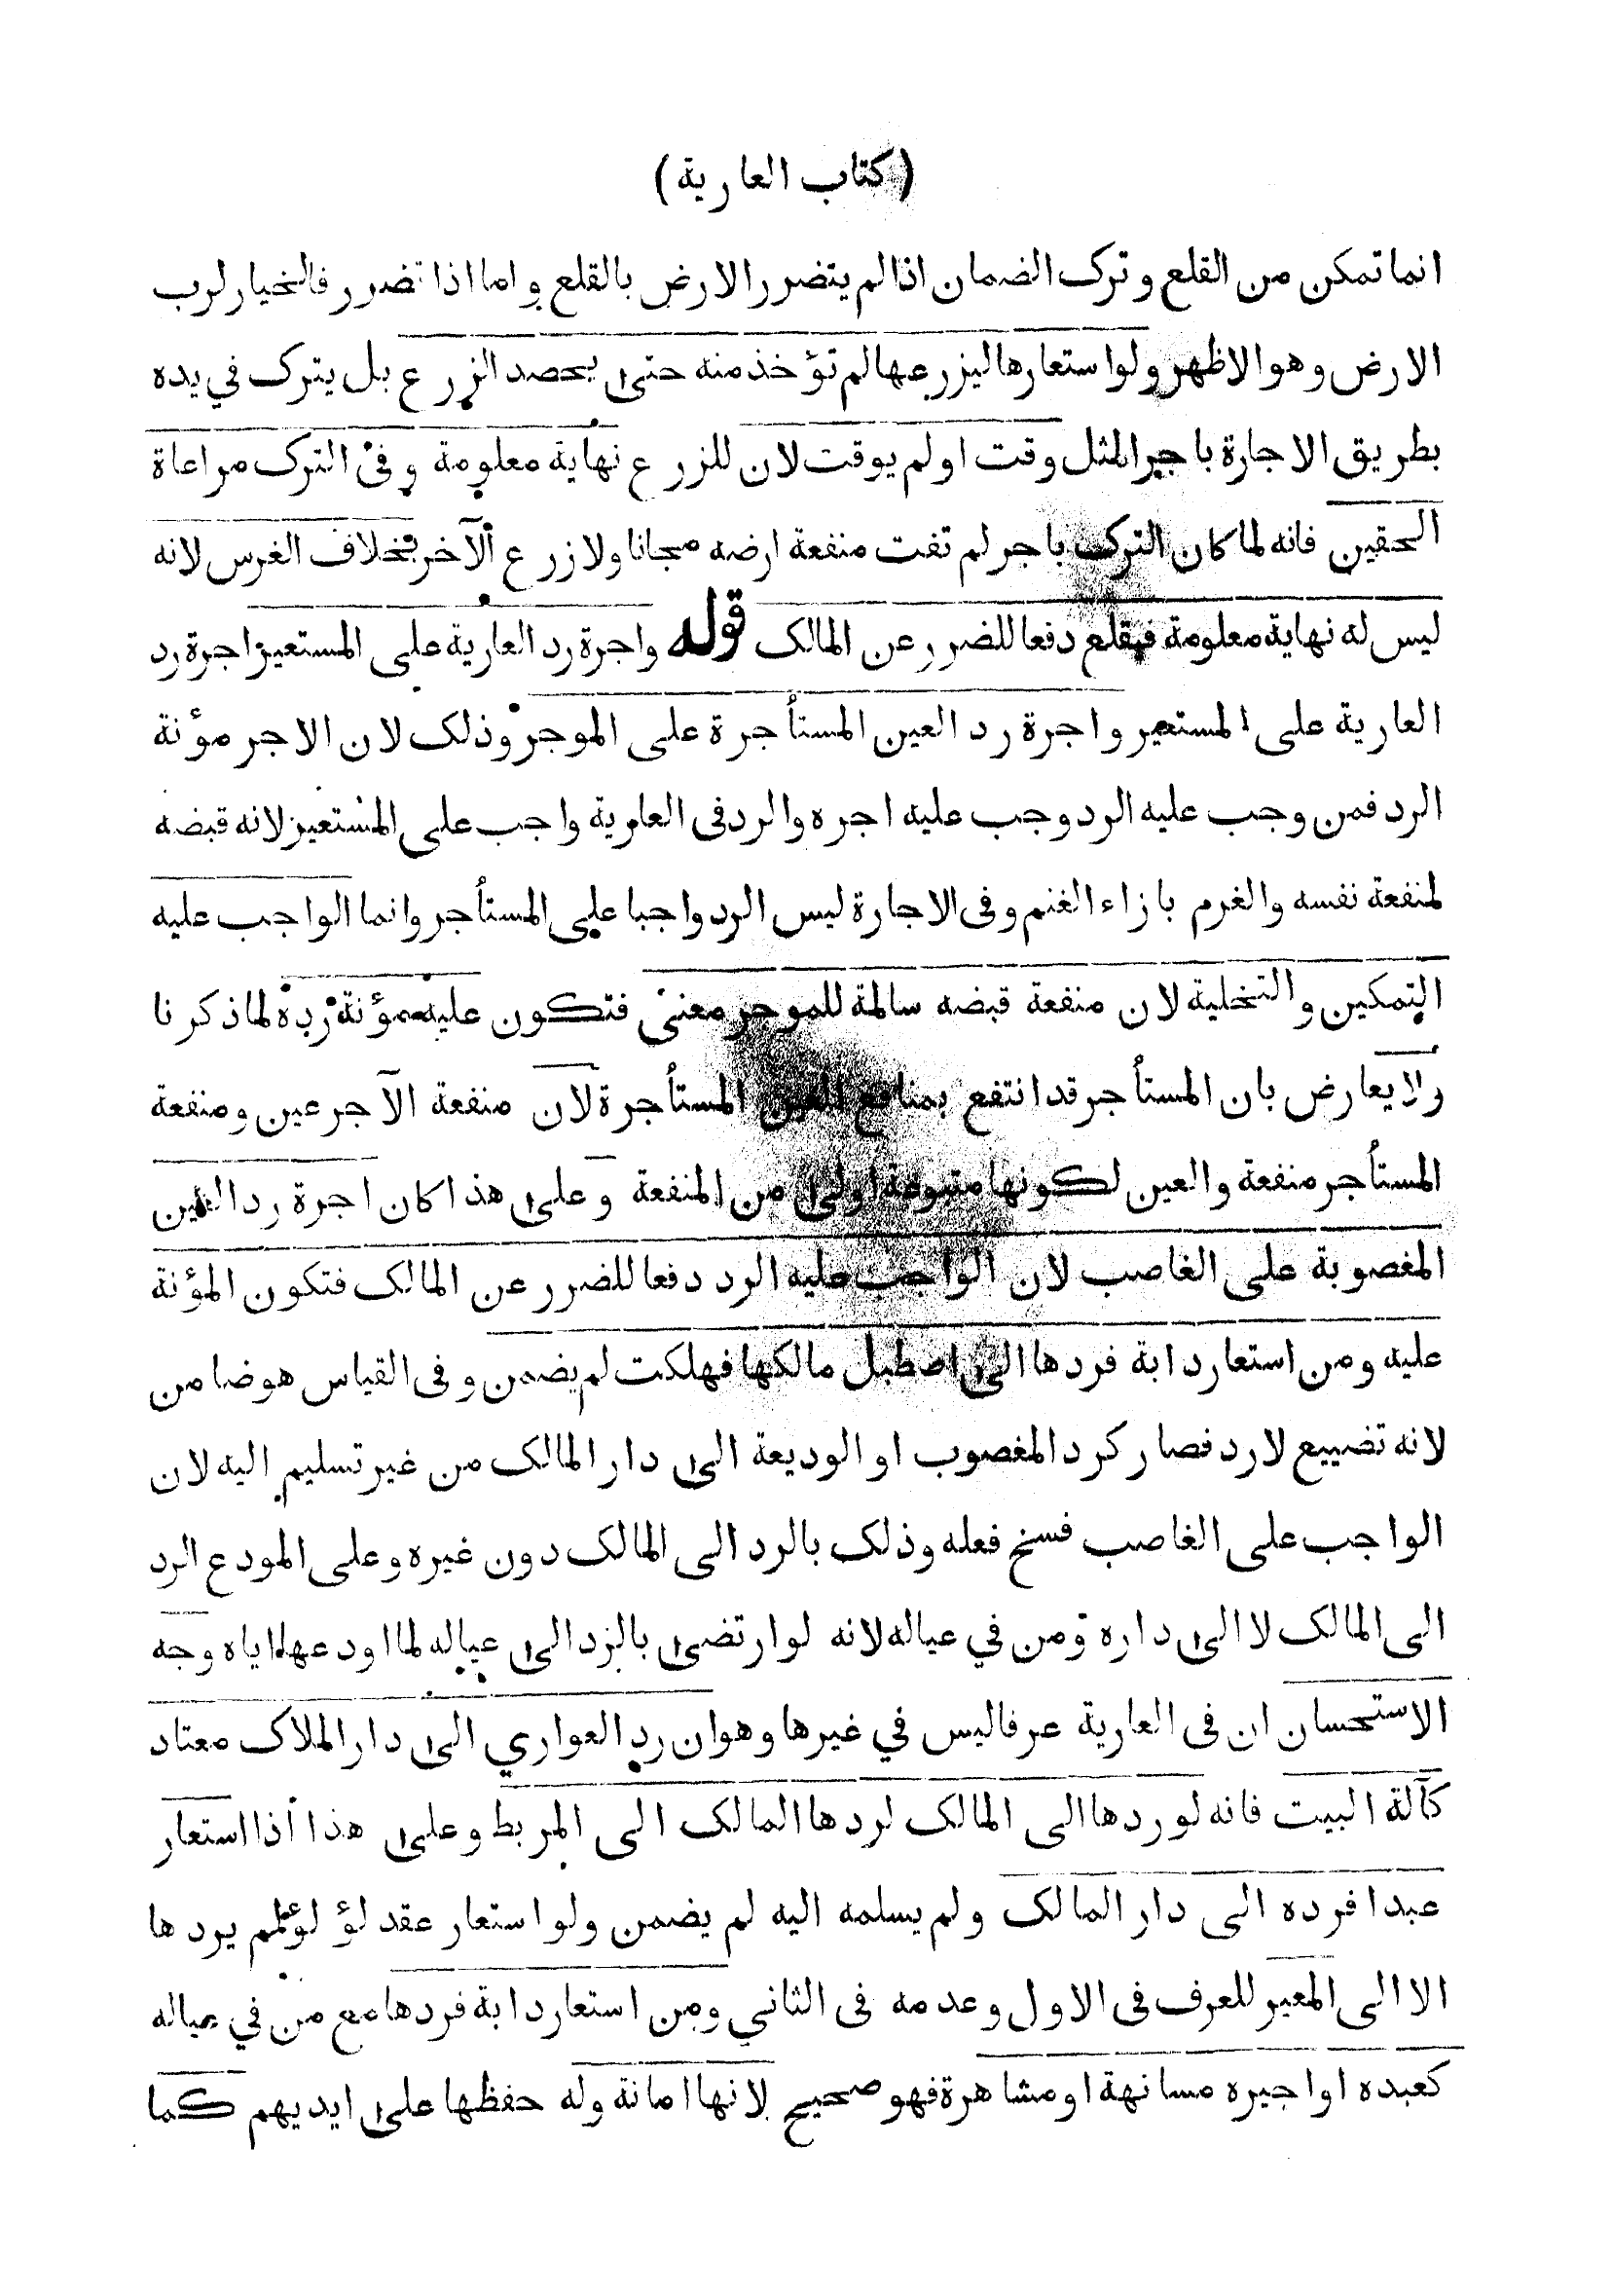 (كتاب العارية)
انما تمكن من القلع وترك الضمان اذا لم يتضرر الارض بالقلع واما اذا تضرر فالخيار لرب
الارض وهو الاظهر ولو استعارها ليزرعها لم تؤخذ منه حتى يحصد الزرع بل يترك في يده
بطريق الاجارة باجر المثل وقت اولم يوقت لان للزرع نهاية معلومة وفى الترك مراعاة
الحقين فانه لما كان الترك باجر لم تفت منفعة ارضه مجانا ولا زرع الآخر بخلاف الغرس لانه
ليس له نهاية معلومة فيقلع دفعا للضرر عن المالك قوله واجرة رد العارية على المستعير اجرة رد
العارية على المستعير واجرة رد العين المستأجرة على الموجر وذلك لان الاجر مؤنة
الرد فمن وجب عليه الرد وجب عليه اجره والرد فى العارية واجب على المستعير لانه قبضه
لمنفعة نفسه والغرم بازاء الغنم وفى الاجارة ليس الرد واجبا على المستأجر وانما الواجب عليه
التمكين والتخلية لان منفعة قبضه سالمة للموجر معنى فتكون عليه مؤنة رده لما ذكرنا
ولا يعارض بان المستأجر قد انتفع بمنافع العين المستأجرة لان منفعة الآجر عين ومنفعة
المستأجر منفعة والعين لكونها متبوعة اولى من المنفعة وعلى هذا كان اجرة رد العين
المغصوبة على الغاصب لان الواجب عليه الرد دفعا للضرر عن المالك فتكون المؤنة
عليه ومن استعار دابة فردها الى اصطبل مالكها فهلكت لم يضمن وفى القياس هو ضامن
لانه تضييع لارد فصار كرد المغصوب او الوديعة الى دار المالك من غير تسليم اليه لان
الواجب على الغاصب فسخ فعله وذلك بالرد الى المالك دون غيره وعلى المودع الرد
الى المالك لا الى داره ومن في عياله لانه لوارتضى بالرد الى عياله لما اودعها اياه وجه
الاستحسان ان فى العارية عرفا ليس في غيرها وهو ان رد العواري الى دار الملاك معتاد
كآلة البيت فانه لو ردها الى المالك لردها المالك الى المربط وعلى هذا أذا استعار
عبدا فرده الى دار المالك ولم يسلمه اليه لم يضمن ولو استعار عقد لؤلؤ لم يردها
الا الى المعير للعرف فى الاول وعدمه فى الثاني ومن استعار دابة فردها مع من في عياله
كعبده او اجيره مسانهة او مشاهرة فهو صحيح لانها امانة وله حفظها على ايديهم كما